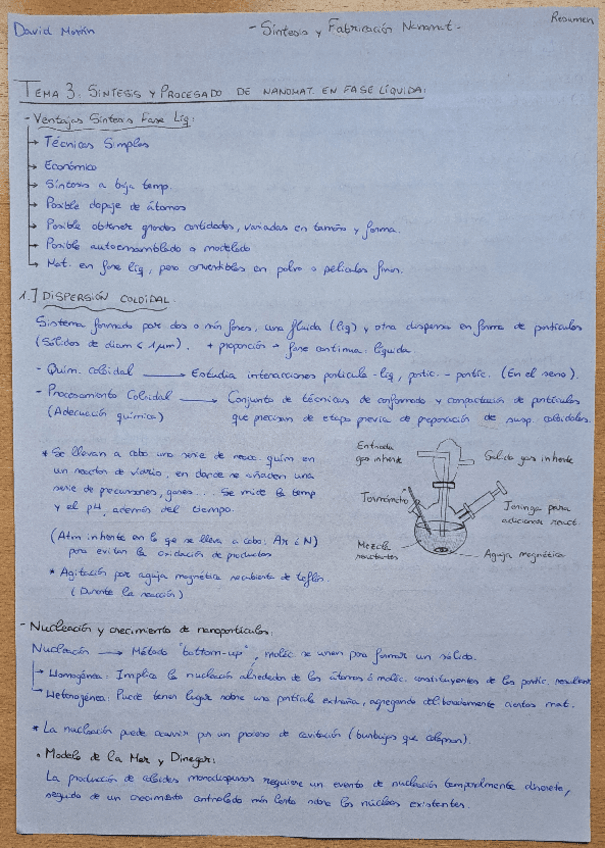 David Morán
- Síntesis y Fabricación Nanomat.
Resumen
TEMA 3. SÍNTESIS Y PROCESADO DE NANOMAT. EN FASE LÍQUIDA:
- Ventajas Síntesis Fase Líq:
→ Técnicas Simples
→ Económico
→ Síntesis a baja temp.
→ Posible dopaje de átomos
→ Posible obtener grandes cantidades, variadas en tamaño y forma.
→ Posible autoensamblado o modelado
→ Mat. en fase líq, pero convertibles en polvo o películas finas.
1.] DISPERSIÓN COLOIDAL.
Sistema formado por dos o más fases, una fluida (líq) y otra dispersa en forma de partículas
(Sólidos de diam < 1 μm). + proporción → fase continua: líquida.
- Quím. coloidal → Estudia interacciones partícula-líq, partíc.-partíc. (En el seno).
- Procesamiento Coloidal → Conjunto de técnicas de conformado y compactación de partículas
(Adecuación química) que precisan de etapa previa de preparación de susp. coloidales.
* Se llevan a cabo una serie de reacc. quím en
un reactor de vidrio, en donde se añaden una
serie de precursores, gases... Se mide la temp
y el pH, además del tiempo.
(Atm inherte en la qe se lleva a cabo: Ar ó N)
para evitar la oxidación de productos
* Agitación por aguja magnética recubierta de teflón.
(Durante la reacción)
Entrada
gas inherte
Salida gas inherte
Termómetro
Jeringa para
adicionar react.
Mezcla
reactantes
Aguja magnética
- Nucleación y crecimiento de nanopartículas:
Nucleación → Método "bottom-up", moléc. se unen para formar un sólido.
→ Homogénea: Implica la nucleación alrededor de los átomos ó moléc. constituyentes de las partíc. resultant.
→ Heterogénea: Puede tener lugar sobre una partícula extraña, agregando deliberadamente ciertos mat.
* La nucleación puede ocurrir por un proceso de cavitación (burbujas que colapsan).
• Modelo de La Mer y Dinegar:
La producción de coloides monodispersos requiere un evento de nucleación temporalmente discreto,
seguido de un crecimiento controlado más lento sobre los núcleos existentes.